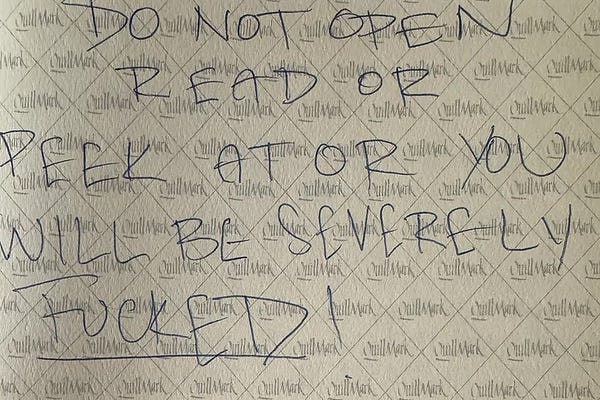 DO NOT OPEN
READ OR
PEEK AT OR YOU
WILL BE SEVERELY
FUCKED!